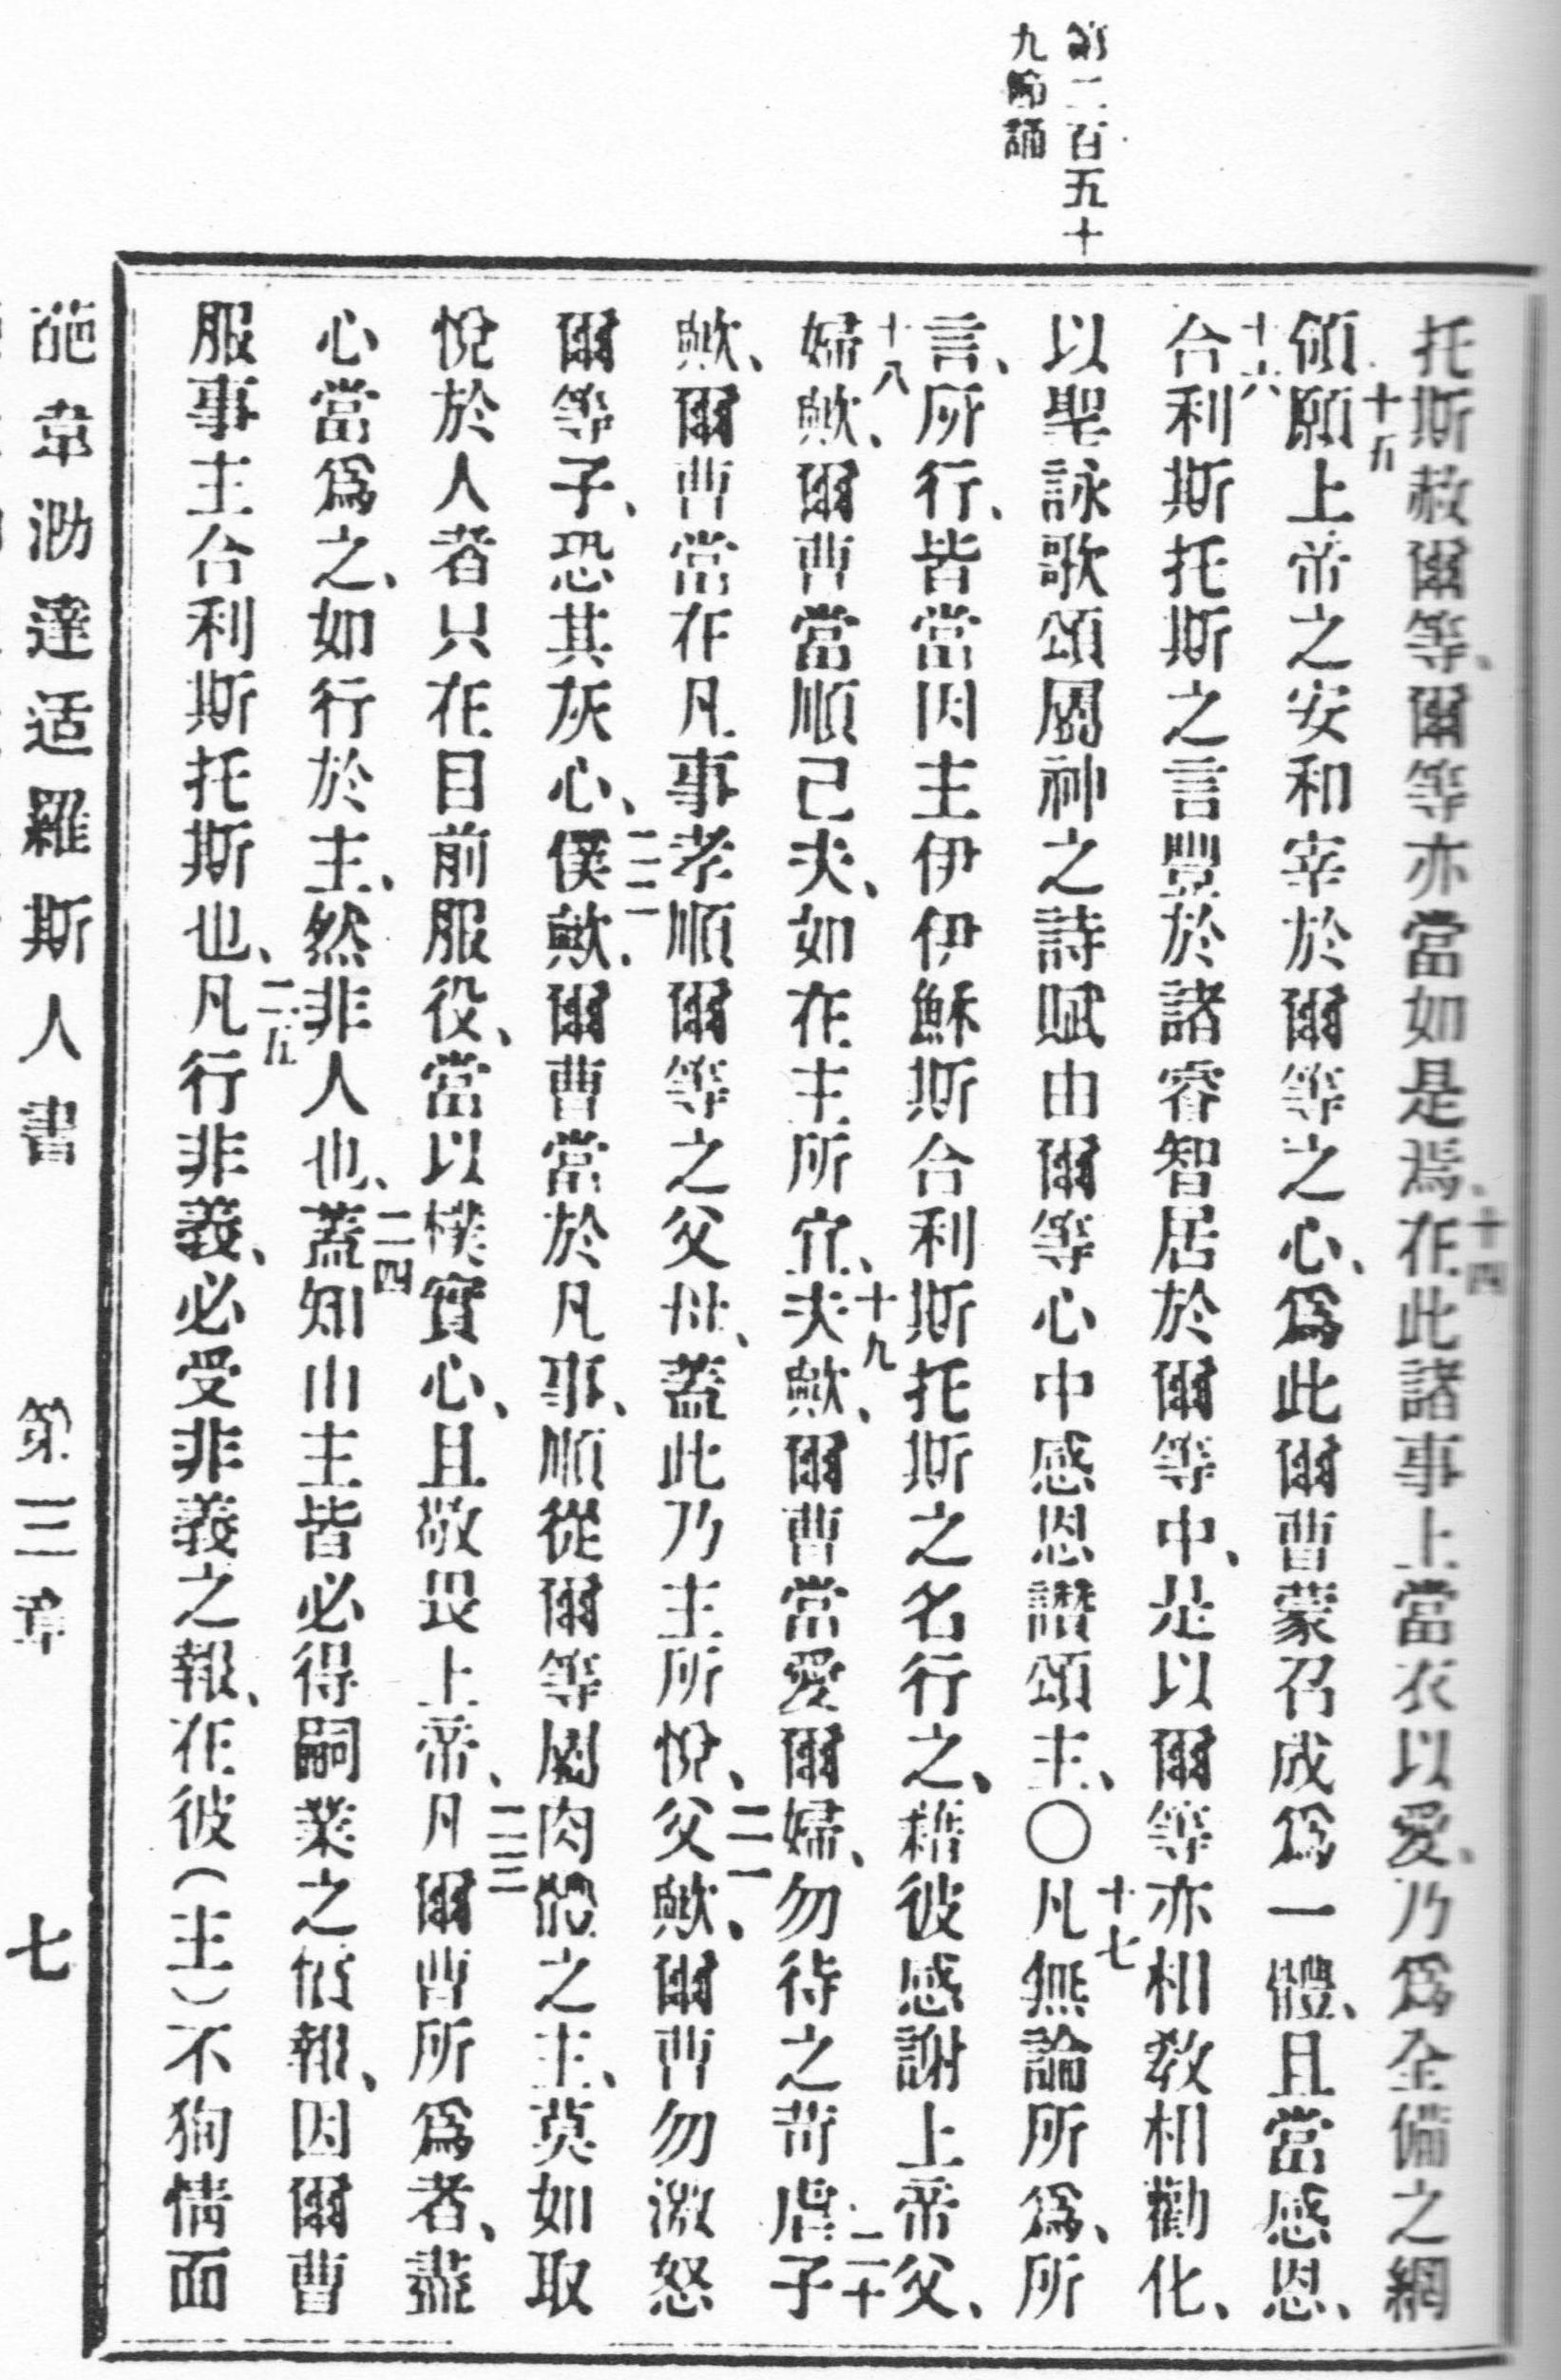 第二百五十
九節誦
托斯赦爾等、爾等亦當如是焉、十四在此諸事上當衣以愛、乃爲全備之網
領、十五願上帝之安和宰於爾等之心、爲此爾曹蒙召成爲一體、且當感恩、
十六合利斯托斯之言豐於諸睿智居於爾等中、是以爾等亦相敎相勸化、
以聖詠歌頌屬神之詩賦由爾等心中感恩讚頌主、〇十七凡無論所爲、所
言、所行、皆當因主伊伊穌斯合利斯托斯之名行之、藉彼感謝上帝父、
十八婦歟、爾曹當順己夫、如在主所宜、十九夫歟、爾曹當愛爾婦、勿待之苛虐、二十子
歟、爾曹當在凡事孝順爾等之父母、蓋此乃主所悅、二一父歟、爾曹勿激怒
爾等子、恐其灰心、二二僕歟、爾曹當於凡事、順從爾等屬肉體之主、莫如取
悅於人者只在目前服役、當以樸實心、且敬畏上帝、二三凡爾曹所爲者、盡
心當爲之、如行於主、然非人也、二四蓋知由主皆必得嗣業之償報、因爾曹
服事主合利斯托斯也、二五凡行非義、必受非義之報、在彼（主）不狥情面
葩韋泐達适羅斯人書 第三章 七